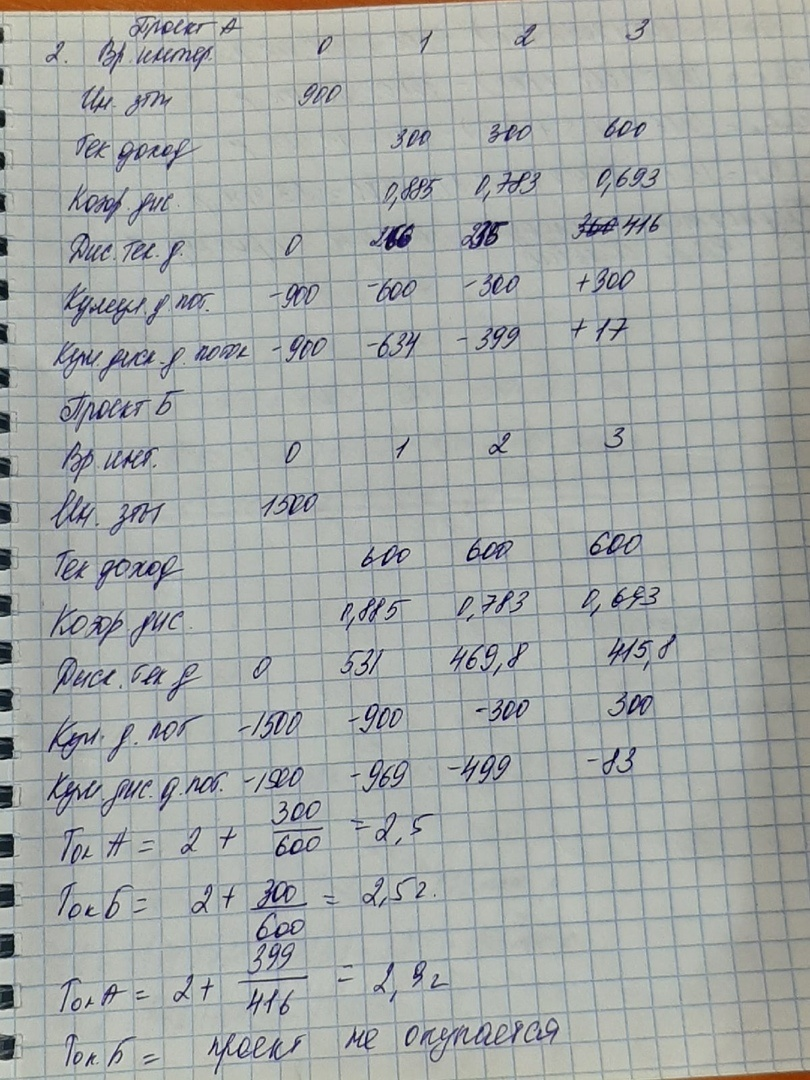 Проект А
2. Вр. интер. 0 1 2 3
Ин. зтт 900
Тек доход 300 300 600
Коэф. дис. 0,885 0,783 0,693
Дис. тек. д. 0 266 235 416
Кумул. д. пот. -900 -600 -300 +300
Кум. диск. д. поток -900 -634 -399 +17
Проект Б
Вр. инт. 0 1 2 3
Ин. зтт 1500
Тек доход 600 600 600
Коэф. дис. 0,885 0,783 0,693
Диск. тек д 0 531 469,8 415,8
Кум. д. пот -1500 -900 -300 300
Кум дис. д. пот. -1500 -969 -499 -83
Ток А = 2 + 300/600 = 2,5
Ток Б = 2 + 300/600 = 2,5 г.
Ток А = 2 + 399/416 = 2,9 г
Ток. Б = проект не окупается